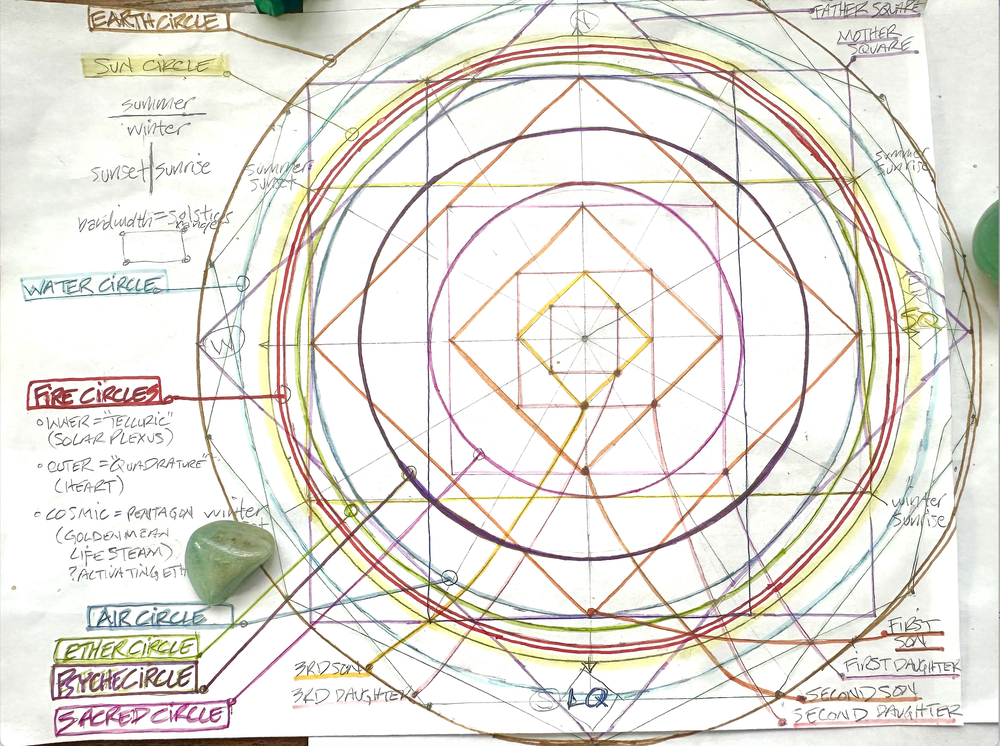 EARTH CIRCLE
SUN CIRCLE
summer
winter
sunset sunrise
bandwidth = solstice
range
WATER CIRCLE
FIRE CIRCLES
INNER = "TELLURIC"
(SOLAR PLEXUS)
OUTER = "QUADRATURE"
(HEART)
COSMIC = PENTAGON
(GOLDEN MEAN
LIFE STEAM)
? ACTIVATING
AIR CIRCLE
ETHER CIRCLE
PSYCHE CIRCLE
SACRED CIRCLE
N
summer
sunset
W
winter
3RD SON
3RD DAUGHTER
S LQ
FATHER SQUARE
MOTHER
SQUARE
summer
sunrise
E
SQ
winter
sunrise
FIRST
SON
FIRST DAUGHTER
SECOND SON
SECOND DAUGHTER